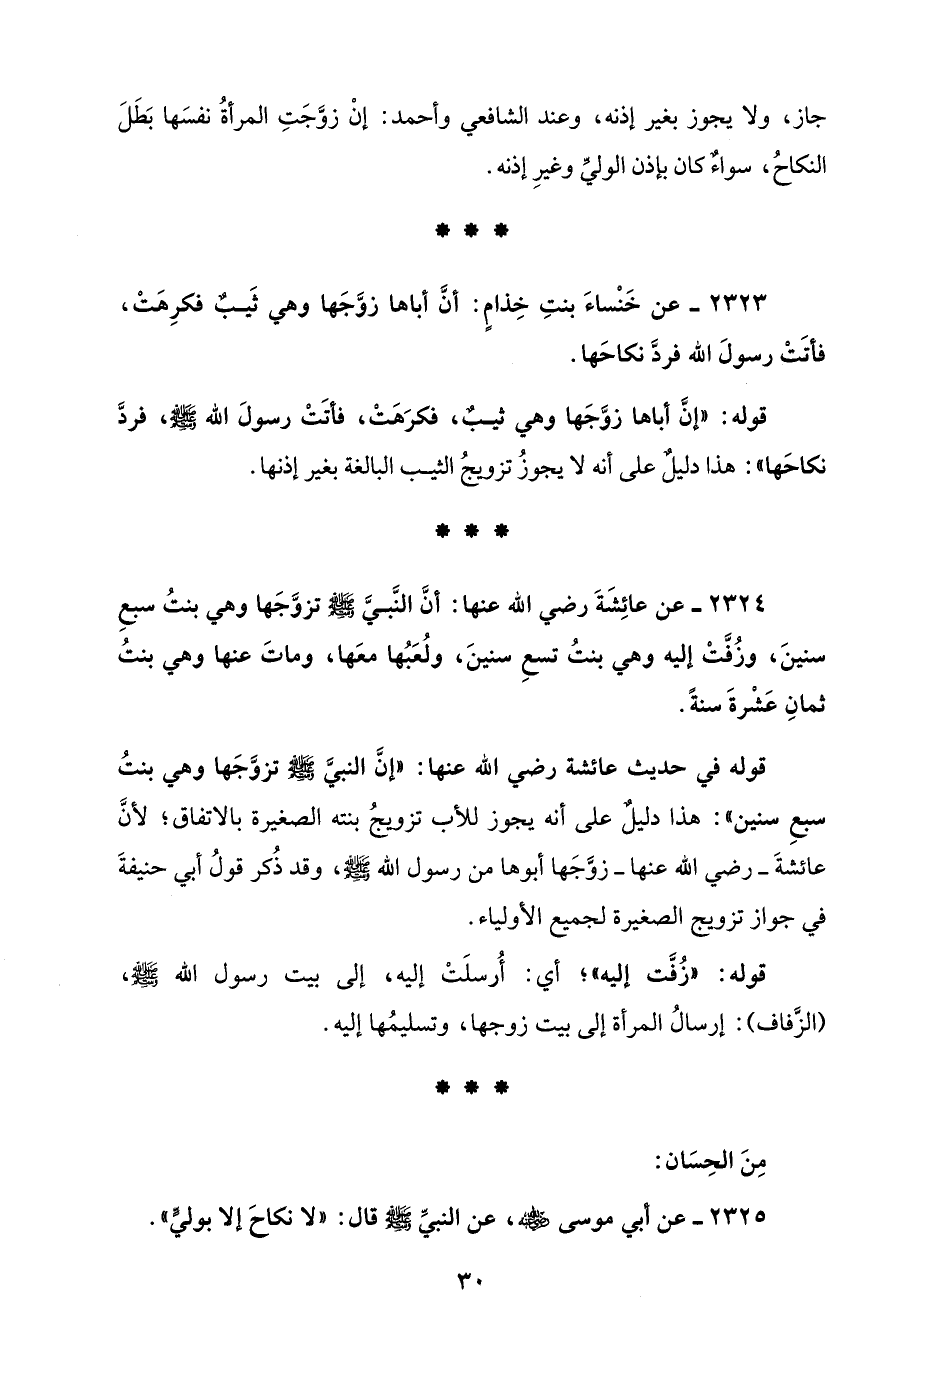 جاز، ولا يجوز بغير إذنه، وعند الشافعي وأحمد: إنْ زوَّجَتِ المرأةُ نفسَها بَطَلَ
النكاحُ، سواءٌ كان بإذن الوليِّ وغيرِ إذنه.
* * *
٢٣٢٣ ـ عن خَنْساءَ بنتِ خِذامٍ: أنَّ أباها زوَّجَها وهي ثَيـبٌ فكرِهَتْ،
فأتَتْ رسولَ الله فردَّ نكاحَها.
قوله: «إنَّ أباها زوَّجَها وهي ثيـبٌ، فكرَهَتْ، فأتَتْ رسولَ الله ﷺ، فردَّ
نكاحَها»: هذا دليلٌ على أنه لا يجوزُ تزويجُ الثيـب البالغة بغير إذنها.
* * *
٢٣٢٤ ـ عن عائِشَةَ رضي الله عنها: أنَّ النَّبـيَّ ﷺ تزوَّجَها وهي بنتُ سبعِ
سنينَ، وزُفَّتْ إليه وهي بنتُ تسعِ سنينَ، ولُعَبُها معَها، وماتَ عنها وهي بنتُ
ثمانِ عَشْرةَ سنةً.
قوله في حديث عائشة رضي الله عنها: «إنَّ النبيَّ ﷺ تزوَّجَها وهي بنتُ
سبعِ سنين»: هذا دليلٌ على أنه يجوز للأب تزويجُ بنته الصغيرة بالاتفاق؛ لأنَّ
عائشةَ ـ رضي الله عنها ـ زوَّجَها أبوها من رسول الله ﷺ، وقد ذُكر قولُ أبي حنيفةَ
في جواز تزويج الصغيرة لجميع الأولياء.
قوله: «زُفَّت إليه»؛ أي: أُرسلَتْ إليه، إلى بيت رسول الله ﷺ،
(الزَّفاف): إرسالُ المرأة إلى بيت زوجها، وتسليمُها إليه.
* * *
مِنَ الحِسَان:
٢٣٢٥ ـ عن أبي موسى رضي الله عنه، عن النبيِّ ﷺ قال: «لا نكاحَ إلا بوليٍّ».
٣٠